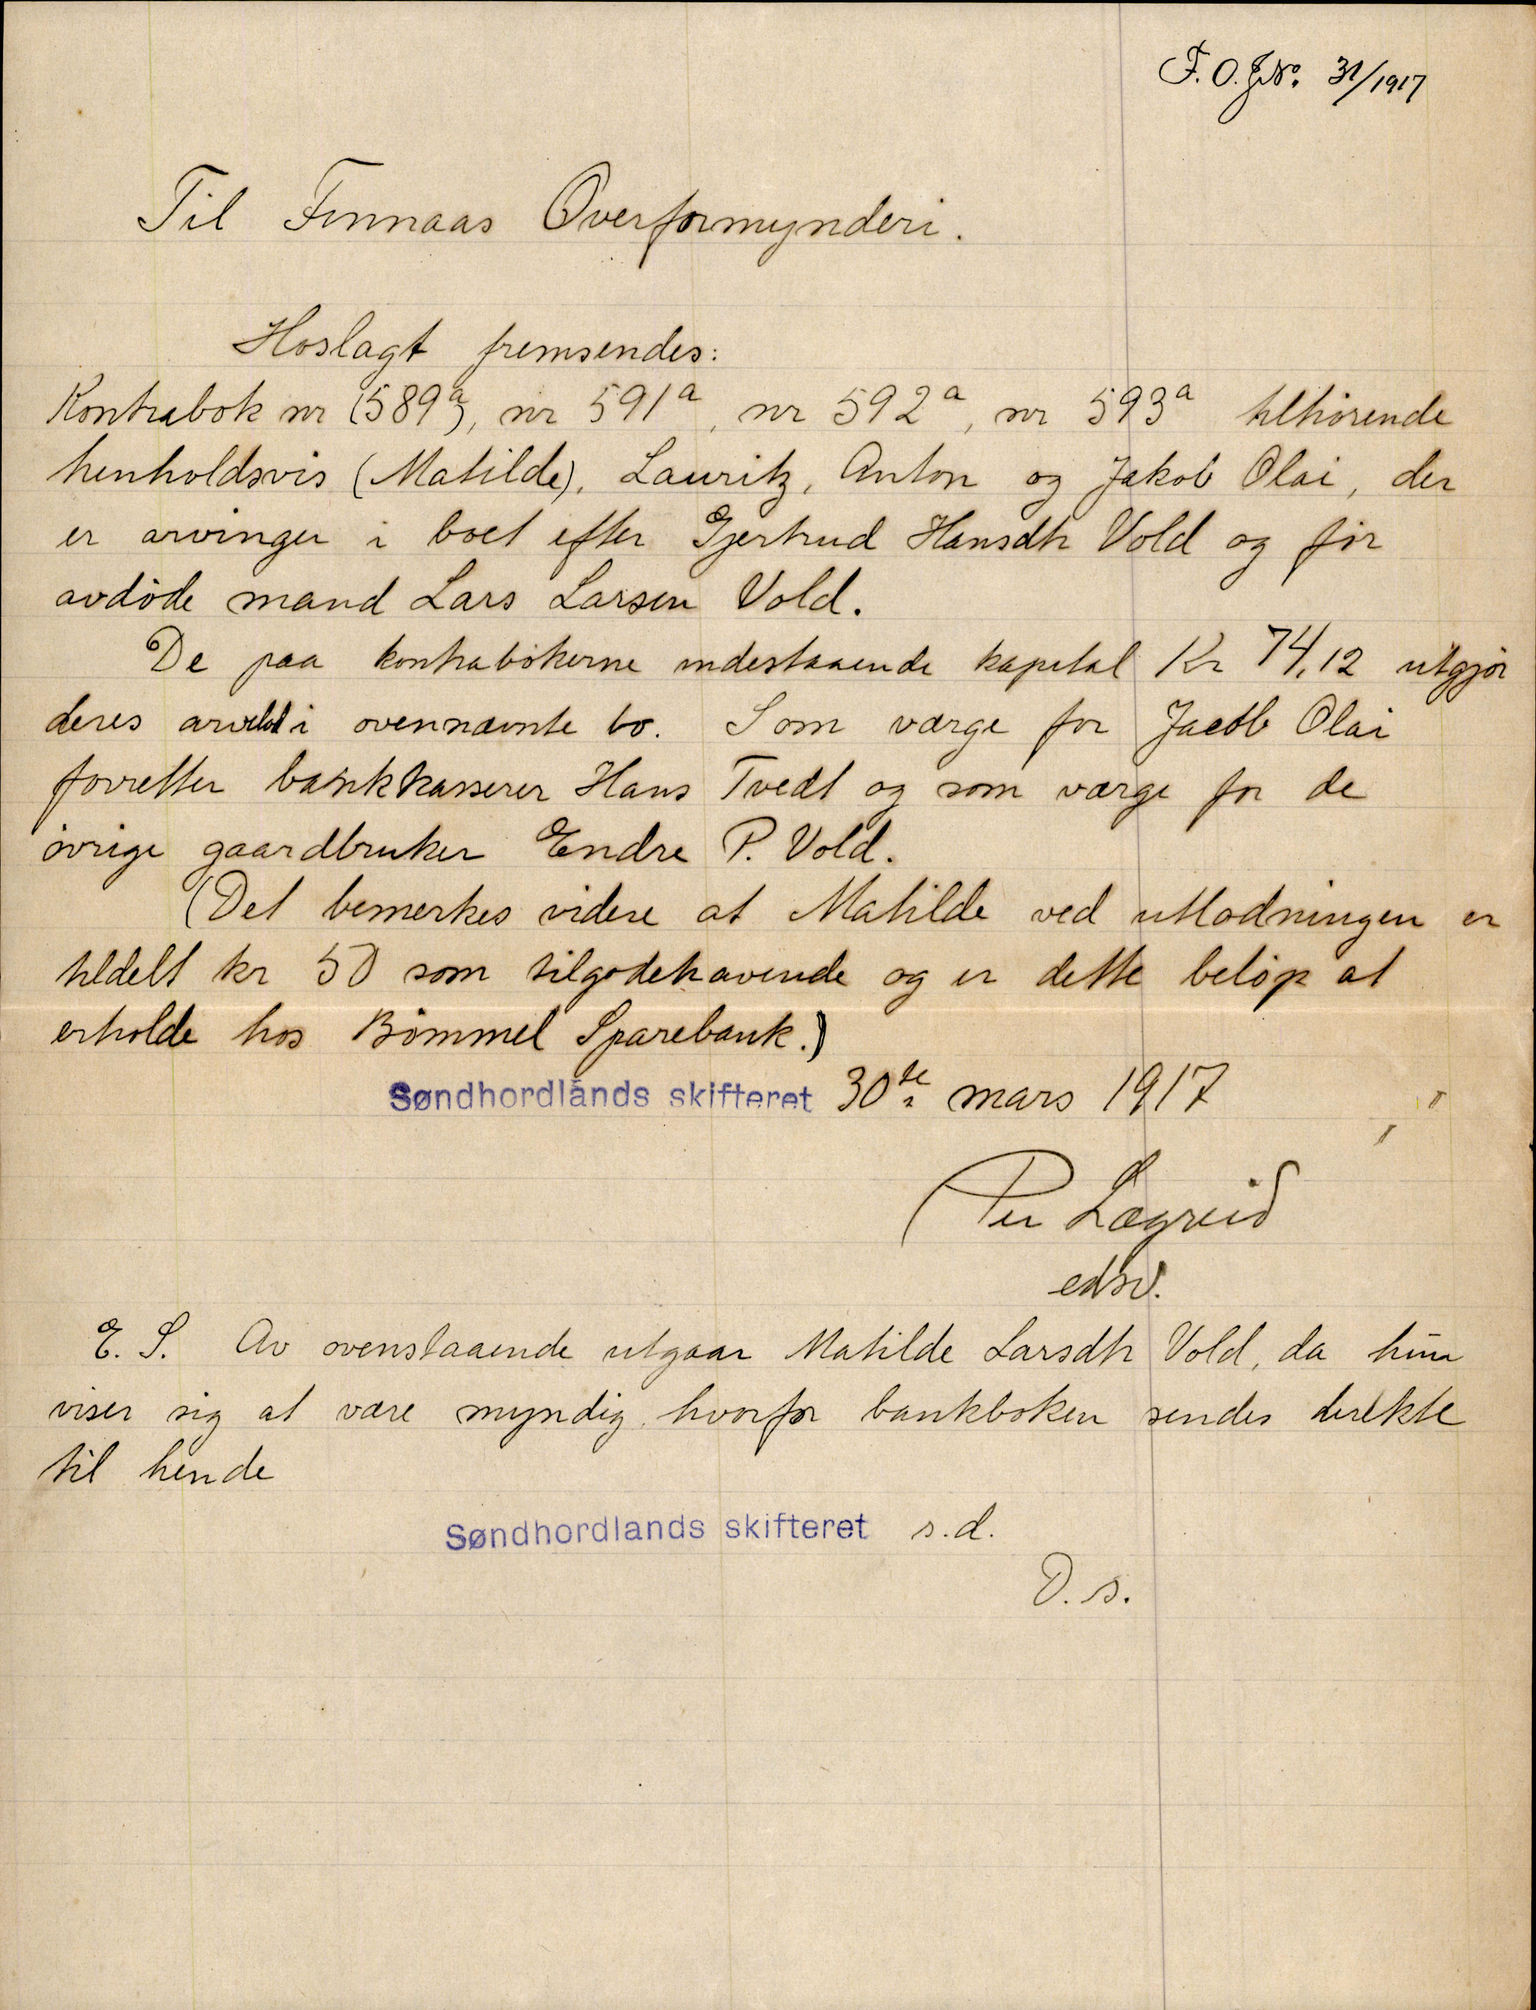 F. O. J.No. 31/1917
Til Finnaas Overformynderi.
Hoslagt fremsendes:
Kontrabok nr (589a), nr 591a, nr 592a, nr 593a tilhørende
henholdsvis (Matilde), Lauritz, Anton og Jakob Olai, der
er arvinger i boet efter Gjertrud Hansdtr Vold og før
avdøde mand Lars Larsen Vold.
De paa kontrabøkerne indestaaende kapital Kr 74,12 utgjør
deres arvelod i ovennævnte bo. Som værge for Jacob Olai
forretter bankkasserer Hans Tvedt og som værge for de
øvrige gaardbruker Endre P. Vold.
(Det bemerkes videre at Matilde ved utlodningen er
tildelt kr 50 som tilgodehavende og er dette beløp at
erholde hos Bømmel Sparebank.)
Søndhordlands skifteret 30te mars 1917
Per Lægreid
edsv.
E. S. Av ovenstaaende utgaar Matilde Larsdtr Vold, da hun
viser sig at være myndig hvorfor bankboken sendes direkte
til hende
Søndhordlands skifteret s.d.
D. s.